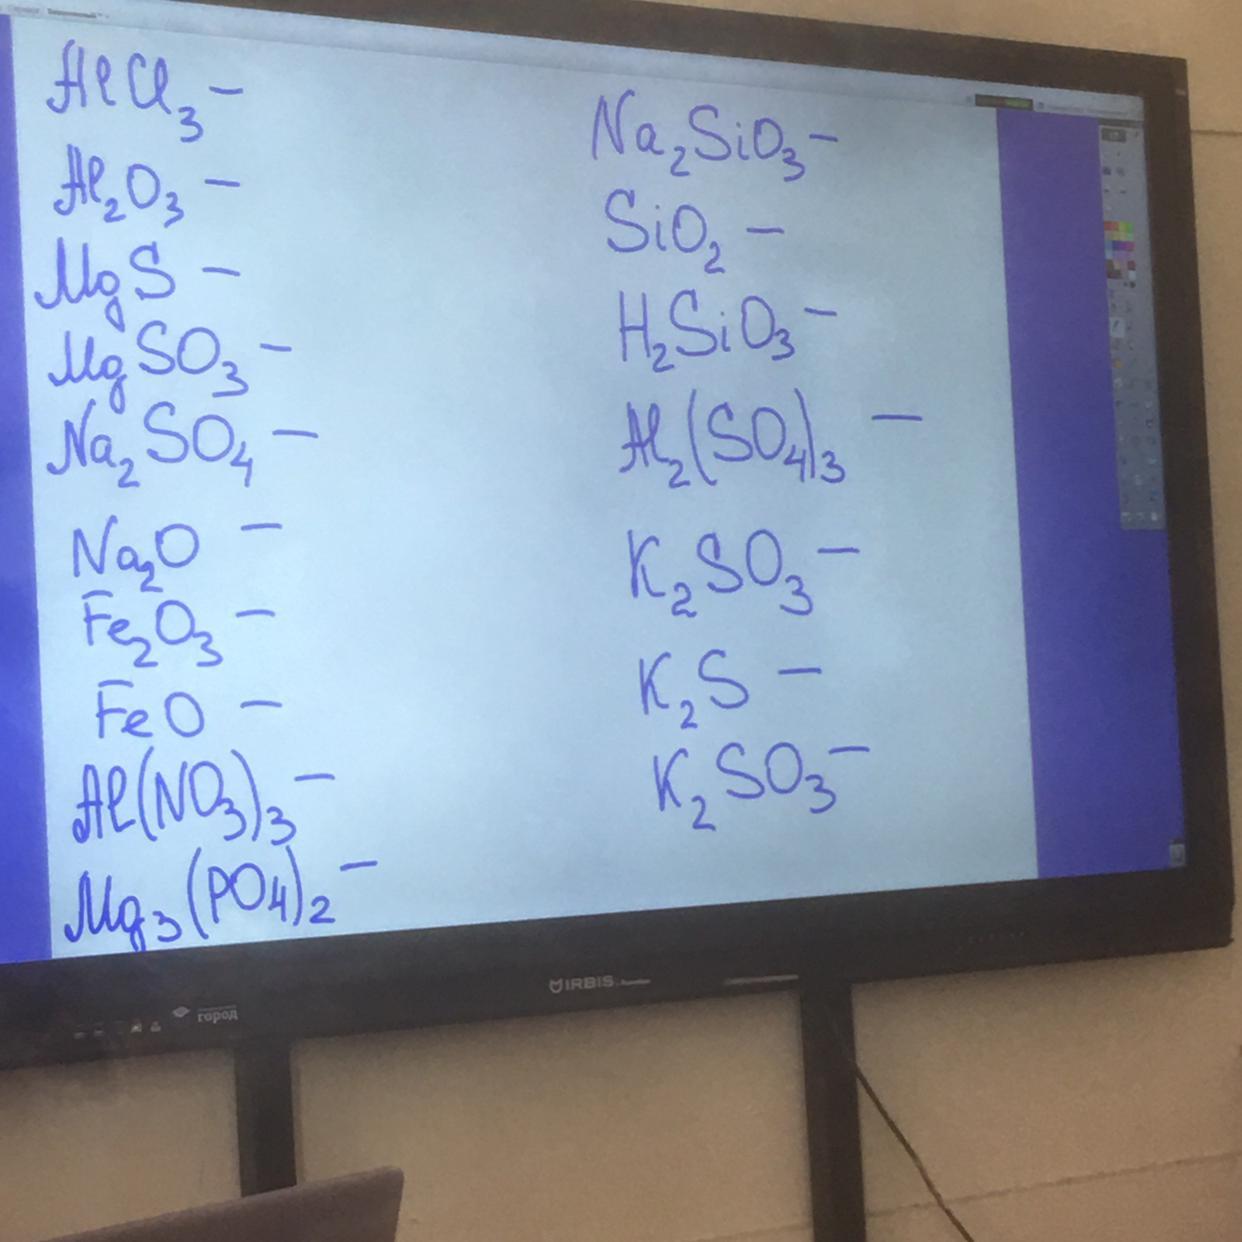 AlCl₃ –
Al₂O₃ –
MgS –
MgSO₃ –
Na₂SO₄ –
Na₂O –
Fe₂O₃ –
FeO –
Al(NO₃)₃ –
Mg₃(PO₄)₂ –
Na₂SiO₃ –
SiO₂ –
H₂SiO₃ –
Al₂(SO₄)₃ –
K₂SO₃ –
K₂S –
K₂SO₃ –
IRBIS
город